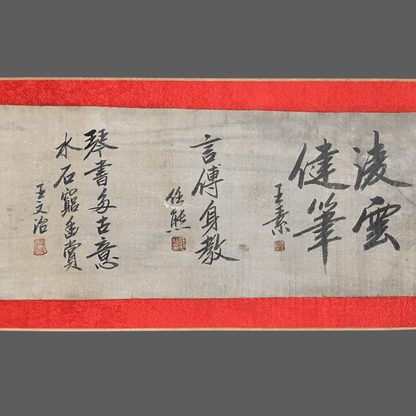 凌雲
健筆
王素
言傳身教
任熊
琴書多古意
水石窮幽賞
王文治